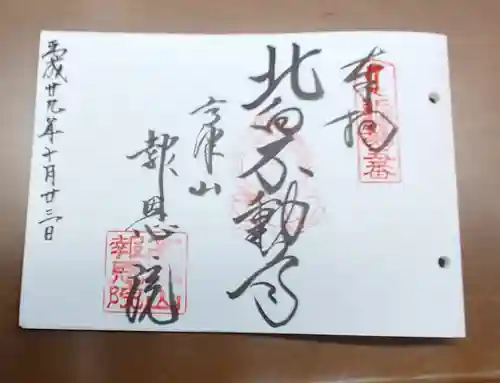 奉拝
北向不動尊
高津山
報恩院
平成廿九年十月廿三日
報恩院